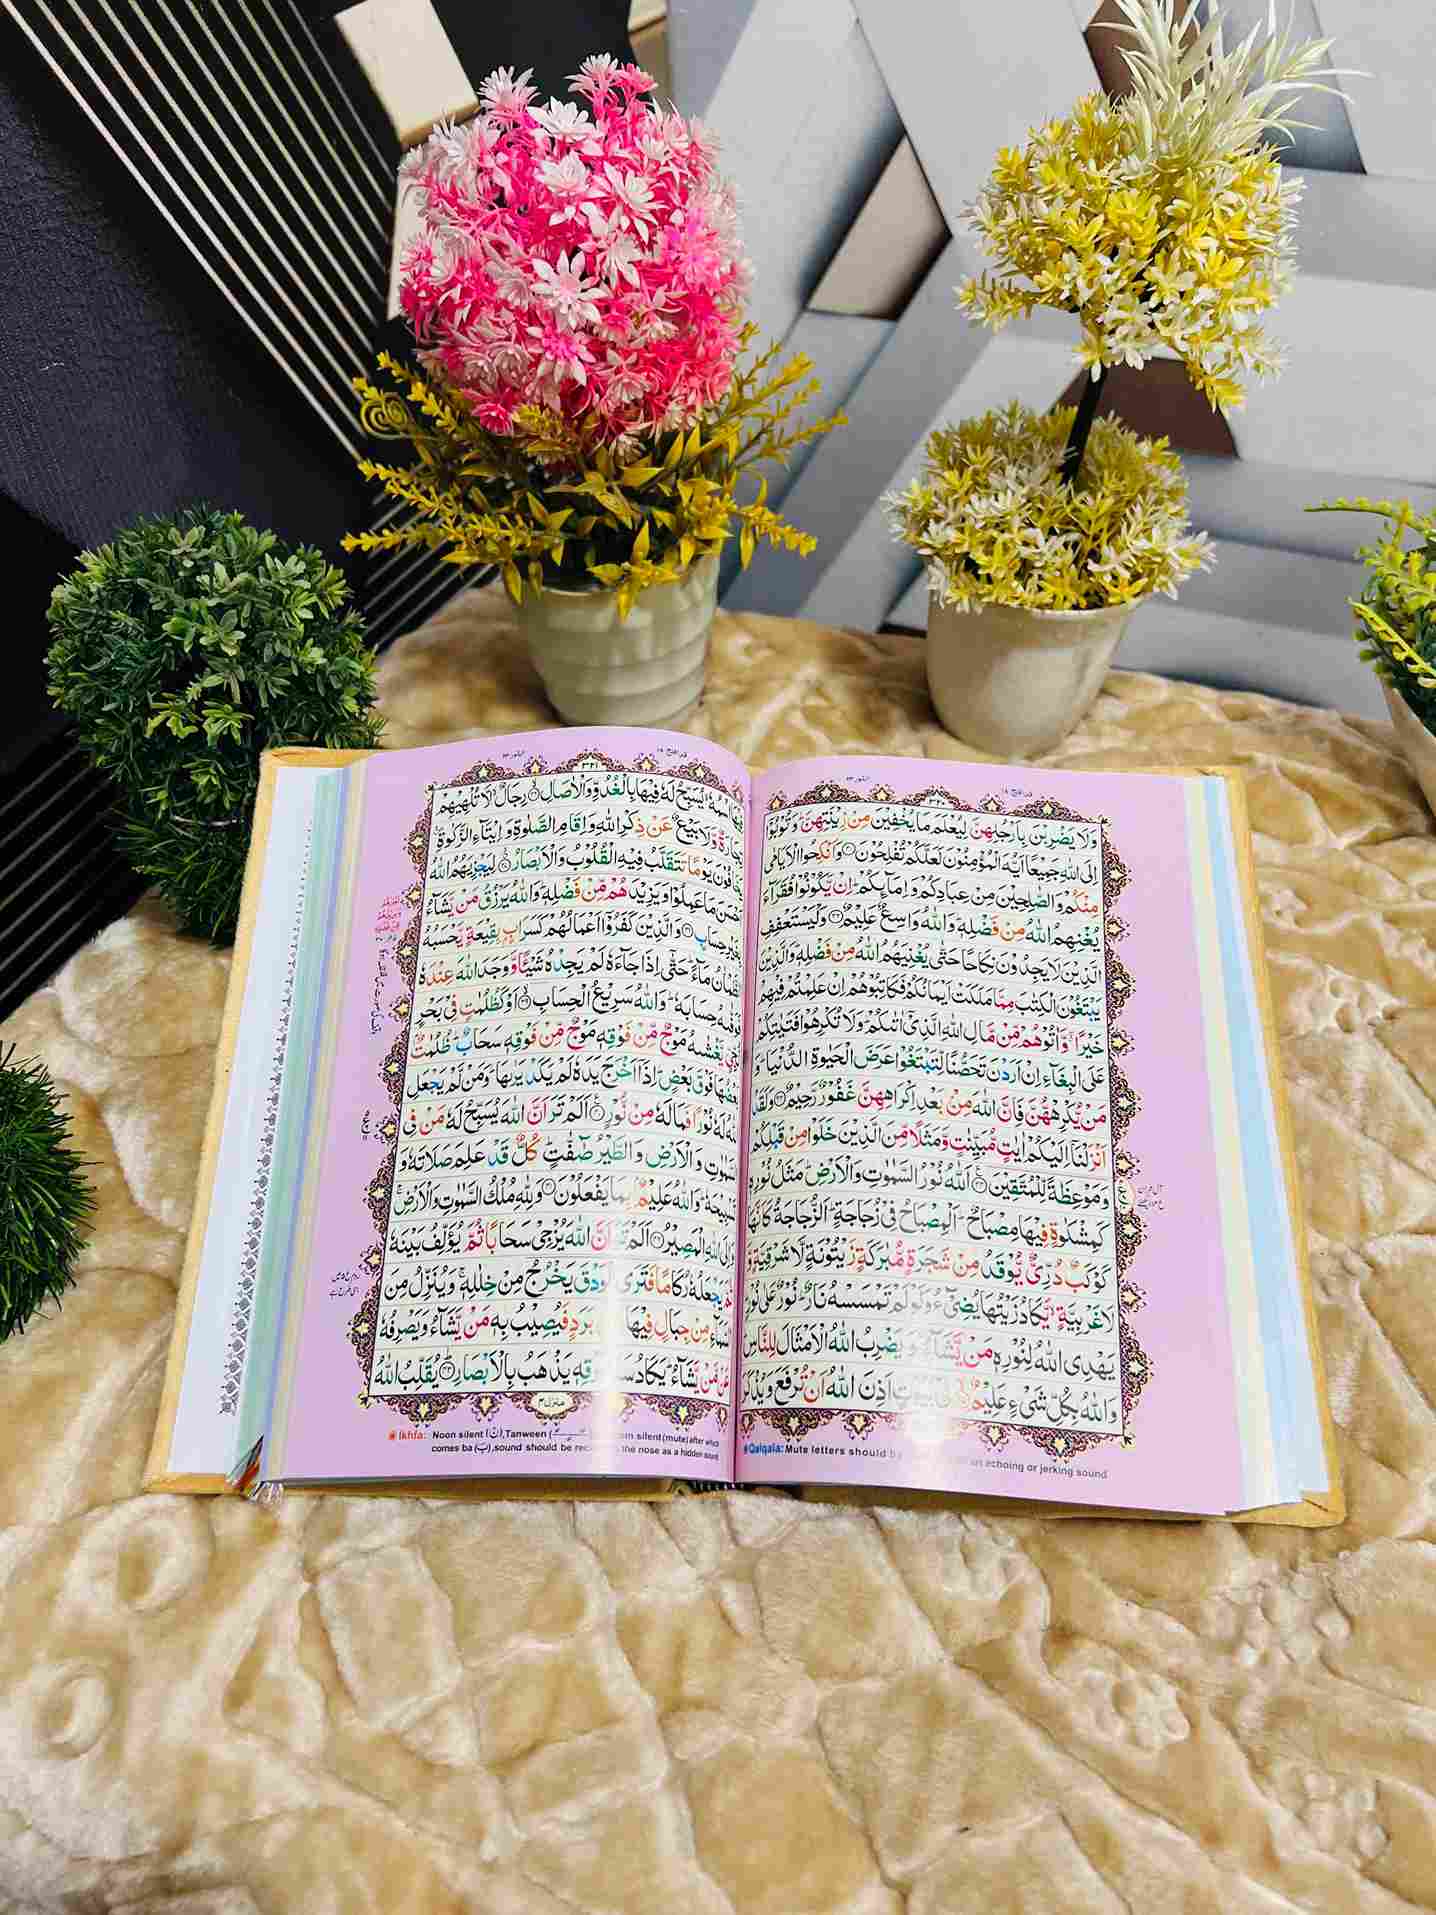 قد افلح ١٨
النور ٢٤
٣٢٠
وَلَا يَضْرِبْنَ بِاَرْجُلِهِنَّ لِيُعْلَمَ مَا يُخْفِيْنَ مِنْ زِيْنَتِهِنَّ ؕ وَتُوْبُوْۤا
اِلَى اللّٰهِ جَمِيْعًا اَيُّهَ الْمُؤْمِنُوْنَ لَعَلَّكُمْ تُفْلِحُوْنَ ۝ وَاَنْكِحُوا الْاَيَامٰى
مِنْكُمْ وَالصّٰلِحِيْنَ مِنْ عِبَادِكُمْ وَاِمَآئِكُمْ ؕ اِنْ يَّكُوْنُوْا فُقَرَآءَ
يُغْنِهِمُ اللّٰهُ مِنْ فَضْلِهٖ ؕ وَاللّٰهُ وَاسِعٌ عَلِيْمٌ ۝ وَلْيَسْتَعْفِفِ
الَّذِيْنَ لَا يَجِدُوْنَ نِكَاحًا حَتّٰى يُغْنِيَهُمُ اللّٰهُ مِنْ فَضْلِهٖ ؕ وَالَّذِيْنَ
يَبْتَغُوْنَ الْكِتٰبَ مِمَّا مَلَكَتْ اَيْمَانُكُمْ فَكَاتِبُوْهُمْ اِنْ عَلِمْتُمْ فِيْهِمْ
خَيْرًا ۖ وَّاٰتُوْهُمْ مِّنْ مَّالِ اللّٰهِ الَّذِيْۤ اٰتٰىكُمْ ؕ وَلَا تُكْرِهُوْا فَتَيٰتِكُمْ
عَلَى الْبِغَآءِ اِنْ اَرَدْنَ تَحَصُّنًا لِّتَبْتَغُوْا عَرَضَ الْحَيٰوةِ الدُّنْيَا ؕ وَ
مَنْ يُّكْرِهْهُّنَّ فَاِنَّ اللّٰهَ مِنْۢ بَعْدِ اِكْرَاهِهِنَّ غَفُوْرٌ رَّحِيْمٌ ۝ وَلَقَدْ
اَنْزَلْنَاۤ اِلَيْكُمْ اٰيٰتٍ مُّبَيِّنٰتٍ وَّمَثَلًا مِّنَ الَّذِيْنَ خَلَوْا مِنْ قَبْلِكُمْ
وَمَوْعِظَةً لِّلْمُتَّقِيْنَ ۝ اَللّٰهُ نُوْرُ السَّمٰوٰتِ وَالْاَرْضِ ؕ مَثَلُ نُوْرِهٖ
كَمِشْكٰوةٍ فِيْهَا مِصْبَاحٌ ؕ اَلْمِصْبَاحُ فِيْ زُجَاجَةٍ ؕ اَلزُّجَاجَةُ كَاَنَّهَا
كَوْكَبٌ دُرِّيٌّ يُّوْقَدُ مِنْ شَجَرَةٍ مُّبٰرَكَةٍ زَيْتُوْنَةٍ لَّا شَرْقِيَّةٍ وَّ
لَا غَرْبِيَّةٍ ۙ يَّكَادُ زَيْتُهَا يُضِيْٓءُ وَلَوْ لَمْ تَمْسَسْهُ نَارٌ ؕ نُوْرٌ عَلٰى نُوْرٍ
يَهْدِى اللّٰهُ لِنُوْرِهٖ مَنْ يَّشَآءُ ؕ وَيَضْرِبُ اللّٰهُ الْاَمْثَالَ لِلنَّاسِ
وَاللّٰهُ بِكُلِّ شَيْءٍ عَلِيْمٌ فِيْ بُيُوْتٍ اَذِنَ اللّٰهُ اَنْ تُرْفَعَ وَيُذْكَرَ
Qalqala: Mute letters should b an echoing or jerking sound
قد افلح ١٨
النور ٢٤
٣٢١
فِيْهَا اسْمُهٗ ۙ يُسَبِّحُ لَهٗ فِيْهَا بِالْغُدُوِّ وَالْاٰصَالِ ۝ رِجَالٌ ۙ لَّا تُلْهِيْهِمْ
تِجَارَةٌ وَّلَا بَيْعٌ عَنْ ذِكْرِ اللّٰهِ وَاِقَامِ الصَّلٰوةِ وَاِيْتَآءِ الزَّكٰوةِ
يَخَافُوْنَ يَوْمًا تَتَقَلَّبُ فِيْهِ الْقُلُوْبُ وَالْاَبْصَارُ ۝ لِيَجْزِيَهُمُ اللّٰهُ
اَحْسَنَ مَا عَمِلُوْا وَيَزِيْدَهُمْ مِّنْ فَضْلِهٖ ؕ وَاللّٰهُ يَرْزُقُ مَنْ يَّشَآءُ
بِغَيْرِ حِسَابٍ ۝ وَالَّذِيْنَ كَفَرُوْۤا اَعْمَالُهُمْ كَسَرَابٍۭ بِقِيْعَةٍ يَّحْسَبُهُ
الظَّمْاٰنُ مَآءً ؕ حَتّٰۤى اِذَا جَآءَهٗ لَمْ يَجِدْهُ شَيْئًا وَّوَجَدَ اللّٰهَ عِنْدَهٗ
فَوَفّٰىهُ حِسَابَهٗ ؕ وَاللّٰهُ سَرِيْعُ الْحِسَابِ ۝ اَوْ كَظُلُمٰتٍ فِيْ بَحْرٍ
لُّجِّيٍّ يَّغْشٰىهُ مَوْجٌ مِّنْ فَوْقِهٖ مَوْجٌ مِّنْ فَوْقِهٖ سَحَابٌ ؕ ظُلُمٰتٌۢ
بَعْضُهَا فَوْقَ بَعْضٍ ؕ اِذَاۤ اَخْرَجَ يَدَهٗ لَمْ يَكَدْ يَرٰىهَا ؕ وَمَنْ لَّمْ يَجْعَلِ
اللّٰهُ لَهٗ نُوْرًا فَمَا لَهٗ مِنْ نُّوْرٍ ۝ اَلَمْ تَرَ اَنَّ اللّٰهَ يُسَبِّحُ لَهٗ مَنْ فِى
السَّمٰوٰتِ وَالْاَرْضِ وَالطَّيْرُ صٰٓفّٰتٍ ؕ كُلٌّ قَدْ عَلِمَ صَلَاتَهٗ وَ
تَسْبِيْحَهٗ ؕ وَاللّٰهُ عَلِيْمٌۢ بِمَا يَفْعَلُوْنَ ۝ وَلِلّٰهِ مُلْكُ السَّمٰوٰتِ وَالْاَرْضِ ۚ
وَاِلَى اللّٰهِ الْمَصِيْرُ ۝ اَلَمْ تَرَ اَنَّ اللّٰهَ يُزْجِيْ سَحَابًا ثُمَّ يُؤَلِّفُ بَيْنَهٗ
ثُمَّ يَجْعَلُهٗ رُكَامًا فَتَرَى الْوَدْقَ يَخْرُجُ مِنْ خِلٰلِهٖ ۚ وَيُنَزِّلُ مِنَ
السَّمَآءِ مِنْ جِبَالٍ فِيْهَا بَرَدٍ فَيُصِيْبُ بِهٖ مَنْ يَّشَآءُ وَيَصْرِفُهٗ
عَنْ مَّنْ يَّشَآءُ ؕ يَكَادُ سَ رْقِهٖ يَذْهَبُ بِالْاَبْصَارِ ۝ يُقَلِّبُ اللّٰهُ
منزل ٤
Ikhfa: Noon silent (نْ), Tanween silent (mute) after which
comes ba (ب), sound should be the nose as a hidden sound